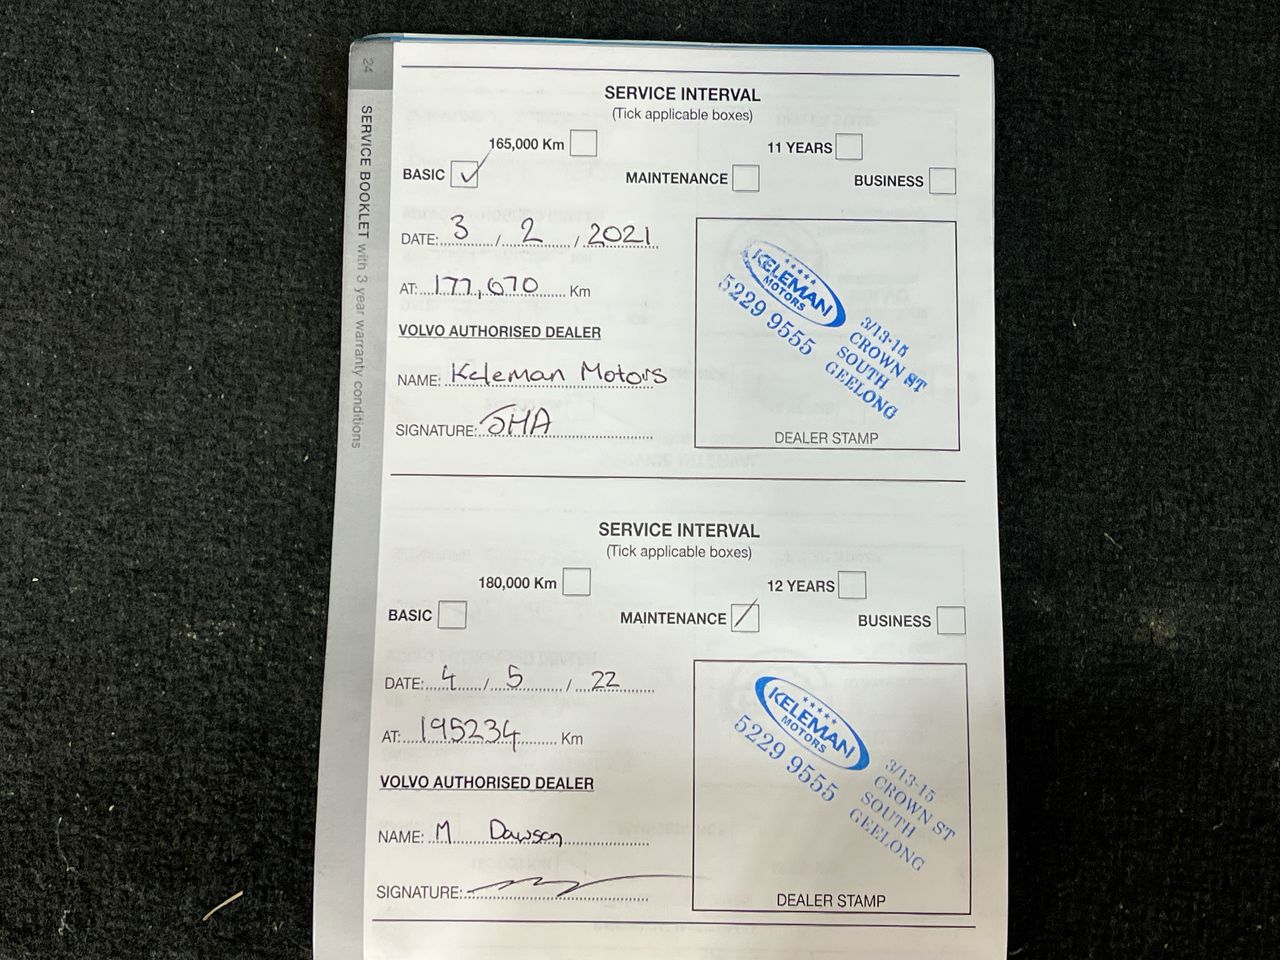 24
SERVICE BOOKLET with 3 year warranty conditions
SERVICE INTERVAL
(Tick applicable boxes)
165,000 Km
11 YEARS
BASIC
MAINTENANCE
BUSINESS
DATE: 3 / 2 / 2021
AT: 177,670 Km
VOLVO AUTHORISED DEALER
NAME: Keleman Motors
SIGNATURE: SHA
KELEMAN
MOTORS
5229 9555
3/13-15
CROWN ST
SOUTH
GEELONG
DEALER STAMP
SERVICE INTERVAL
(Tick applicable boxes)
180,000 Km
12 YEARS
BASIC
MAINTENANCE
BUSINESS
DATE: 4 / 5 / 22
AT: 195234 Km
VOLVO AUTHORISED DEALER
NAME: M Dawson
SIGNATURE:
KELEMAN
MOTORS
5229 9555
3/13-15
CROWN ST
SOUTH
GEELONG
DEALER STAMP